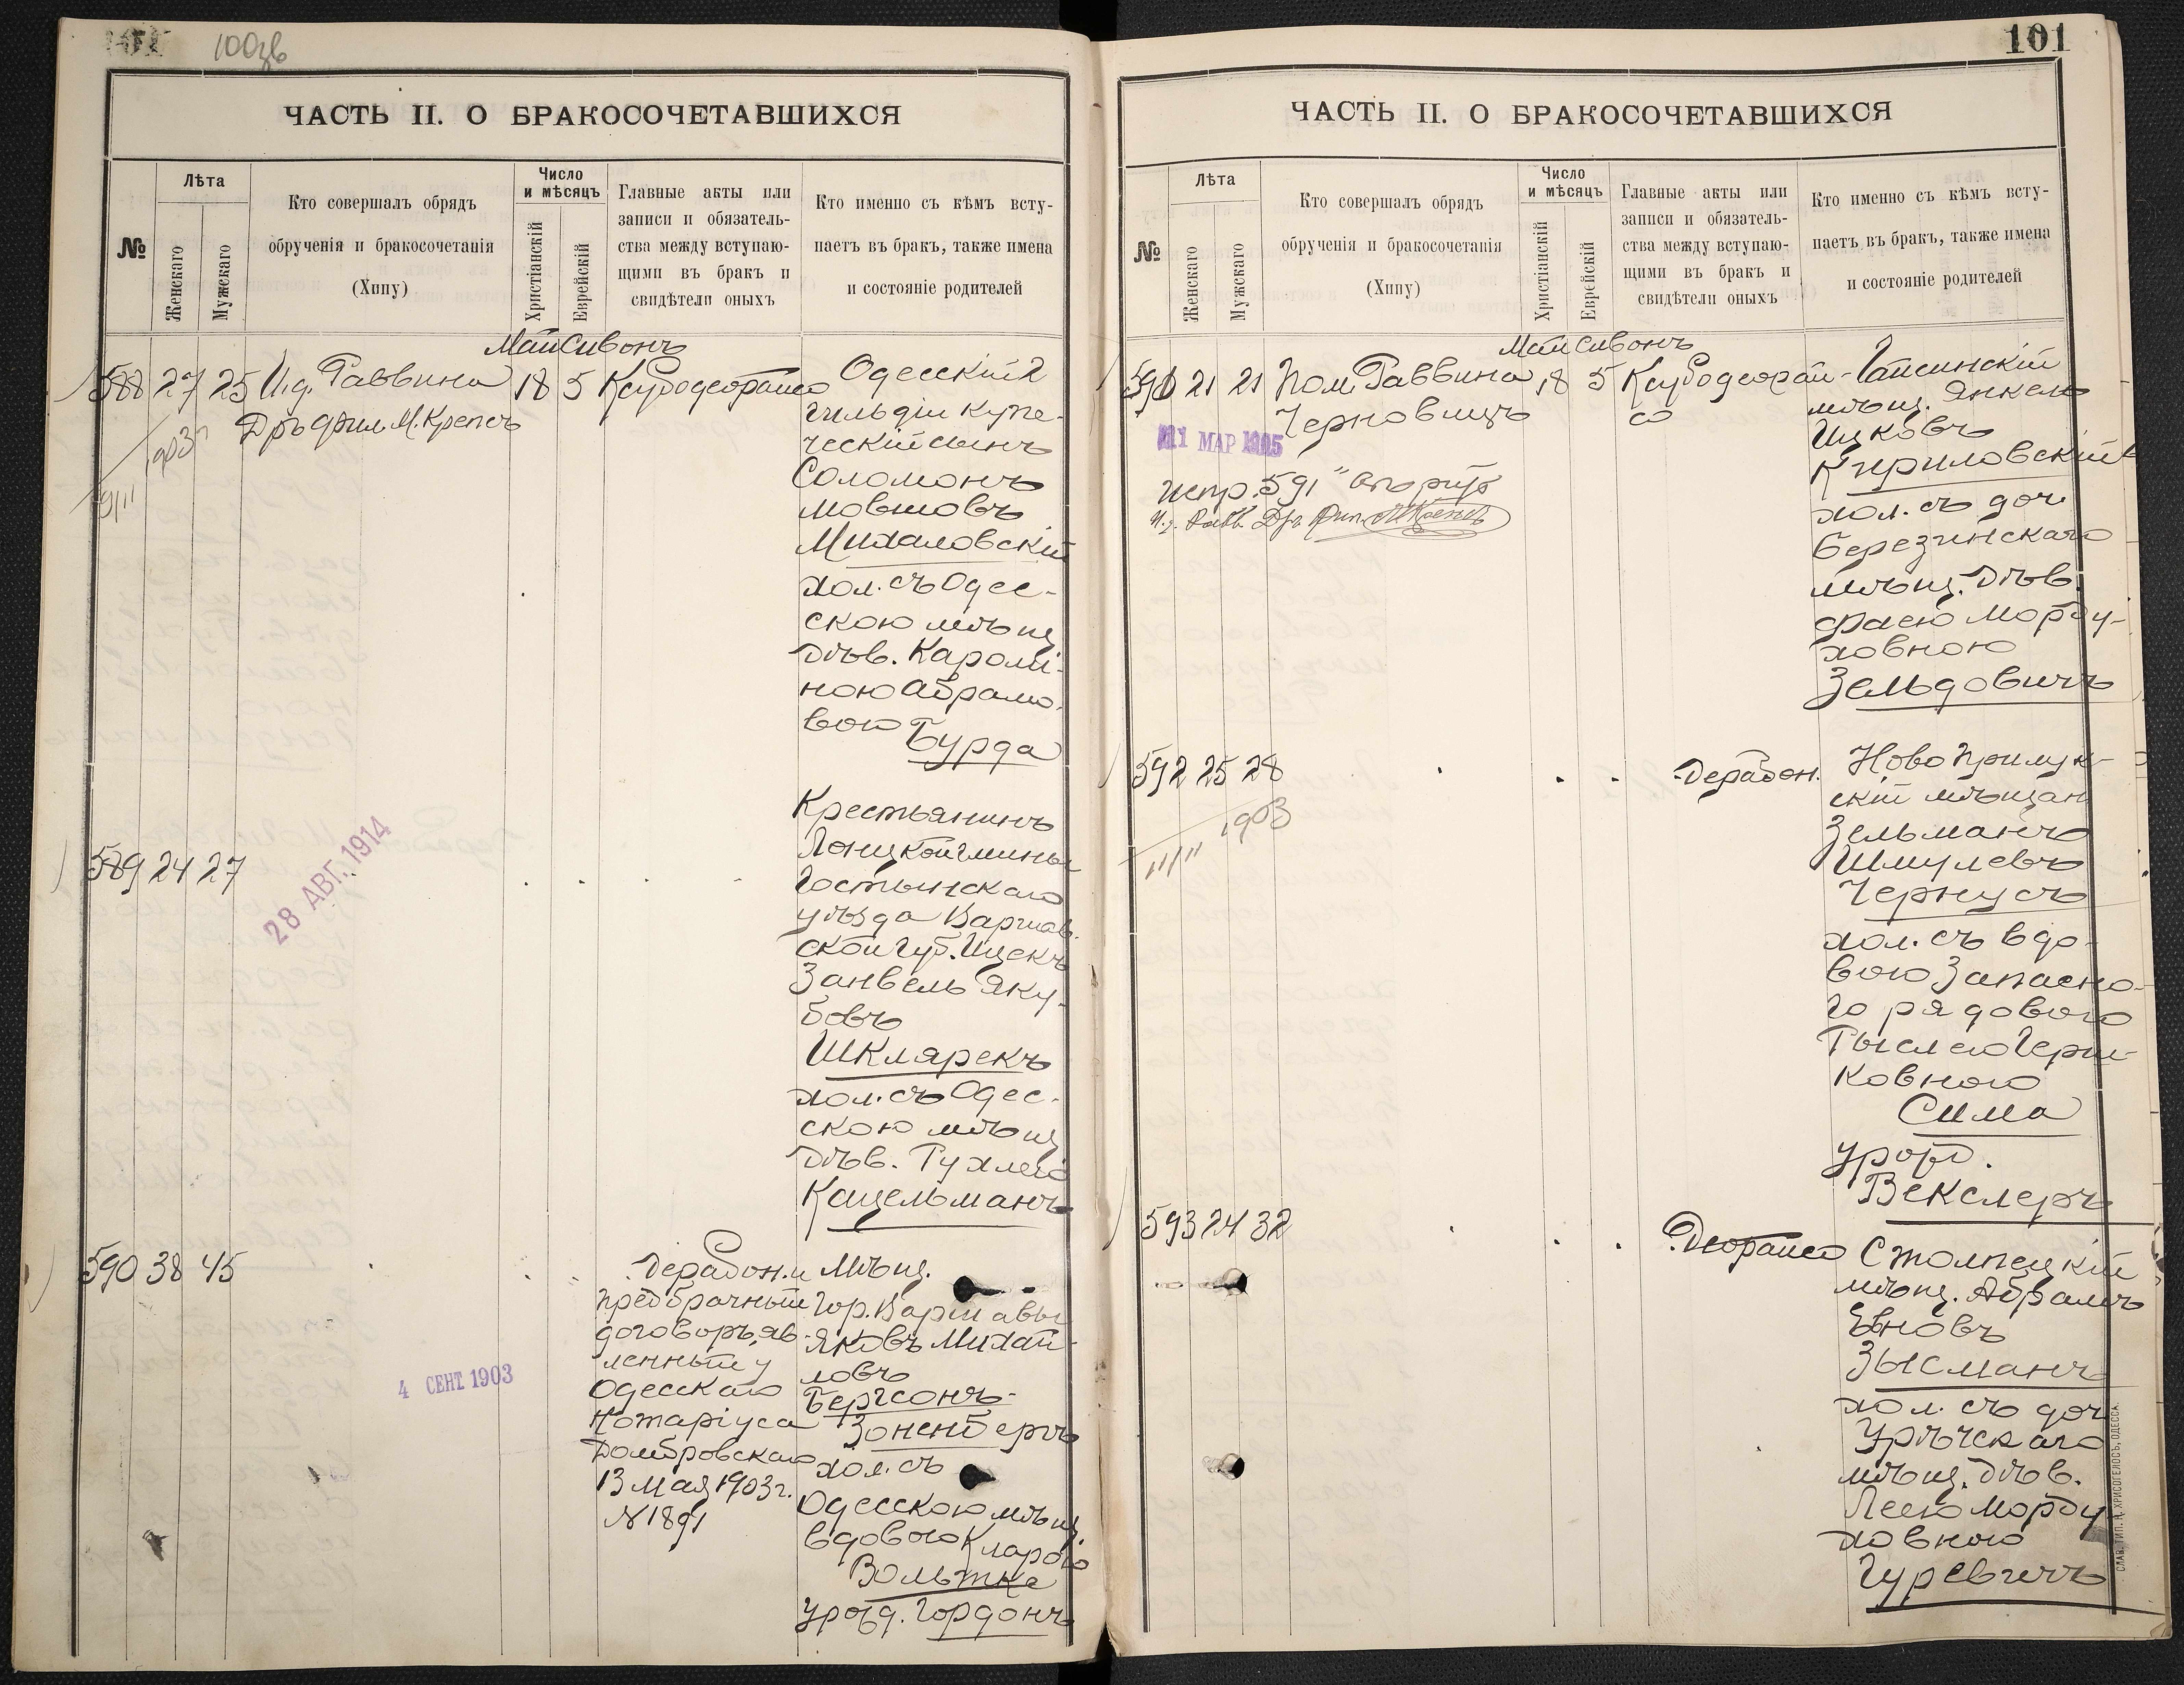 100зв
ЧАСТЬ II. О БРАКОСОЧЕТАВШИХСЯ
№
Лѣта
Женскаго
Мужскаго
Кто совершалъ обрядъ
обрученія и бракосочетанія
(Хипу)
Число
и мѣсяцъ
Христіанскій
Еврейскій
Главные акты или
записи и обязатель-
ства между вступаю-
щими въ бракъ и
свидѣтели оныхъ
Кто именно съ кѣмъ всту-
паетъ въ бракъ, также имена
и состояніе родителей
Май Сивонъ
588 27 25 И.д. Раввина 18 5 Ксубодеорайсо
Дръ Фил. М. Крепсъ
1903
9/II
Одесскій 2
гильдіи купе-
ческій сынъ
Соломонъ
Мовшовъ
Михаловскій
хол. съ Одес-
скою мѣщ.
дѣв. Кароли-
ною Абрамо-
вою Бурда
589 24 27
28 АВГ. 1914
Крестьянинъ
Лонцкой гмины
Гостынскаго
уѣзда Варшав-
ской губ. Ицекъ
Занвель Яку-
бовъ
Шклярекъ
хол. съ Одес-
скою мѣщ.
дѣв. Рухлею
Кацельманъ
590 38 45
4 СЕНТ. 1903
Дерабон. и
предбрачный
договоръ, яв-
ленный у
Одесскаго
Нотаріуса
Домбровскаго
13 Мая 1903 г.
№ 1891
Мѣщ.
гор. Варшавы
Яковъ Михай-
ловъ
Бергсонъ-
Зоненбергъ
хол. съ
Одесскою мѣщ.
вдовою Кларою
Вольтке
урожд. Гордонъ
101
ЧАСТЬ II. О БРАКОСОЧЕТАВШИХСЯ
№
Лѣта
Женскаго
Мужскаго
Кто совершалъ обрядъ
обрученія и бракосочетанія
(Хипу)
Число
и мѣсяцъ
Христіанскій
Еврейскій
Главные акты или
записи и обязатель-
ства между вступаю-
щими въ бракъ и
свидѣтели оныхъ
Кто именно съ кѣмъ всту-
паетъ въ бракъ, также имена
и состояніе родителей
Май Сивонъ
591 21 21 Пом. Раввина 18 5 Ксубодеорай-
Черновицъ
со
11 МАР 1905
испр. 591
И.д. Равв. Дръ Фил. М. Крепсъ
Гайсинскій
мѣщ. Янкель
Ицковъ
Кириловскій
хол. съ доч.
Березинскаго
мѣщ. дѣв.
Фаею Морду-
ховною
Зельдовичъ
592 25 28
1903
11/II
Дерабон.
Ново Прилук-
скій мѣщан.
Зельманъ
Шмулевъ
Чернусъ
хол. съ вдо-
вою Запасно-
го рядового
Тыслею Герш-
ковною
Сима
урожд.
Векслеръ
593 24 32
Деорайсо
Столпецкій
мѣщ. Абрамъ
Евновъ
Зысманъ
хол. съ доч.
Урѣчскаго
мѣщ. дѣв.
Леею Морду-
ховною
Гуревичъ
СЛАВ. ТИП. Н. ХРИСОГЕЛОСЪ, ОДЕССА.